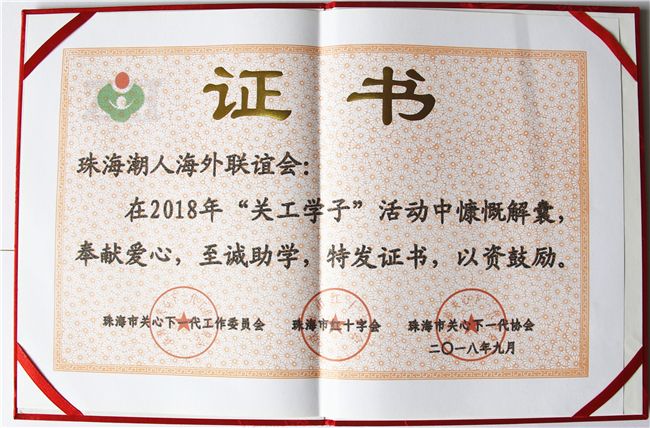 证书
珠海潮人海外联谊会：
在2018年“关工学子”活动中慷慨解囊，
奉献爱心，至诚助学，特发证书，以资鼓励。
珠海市关心下一代工作委员会 珠海市红十字会 珠海市关心下一代协会
二〇一八年九月